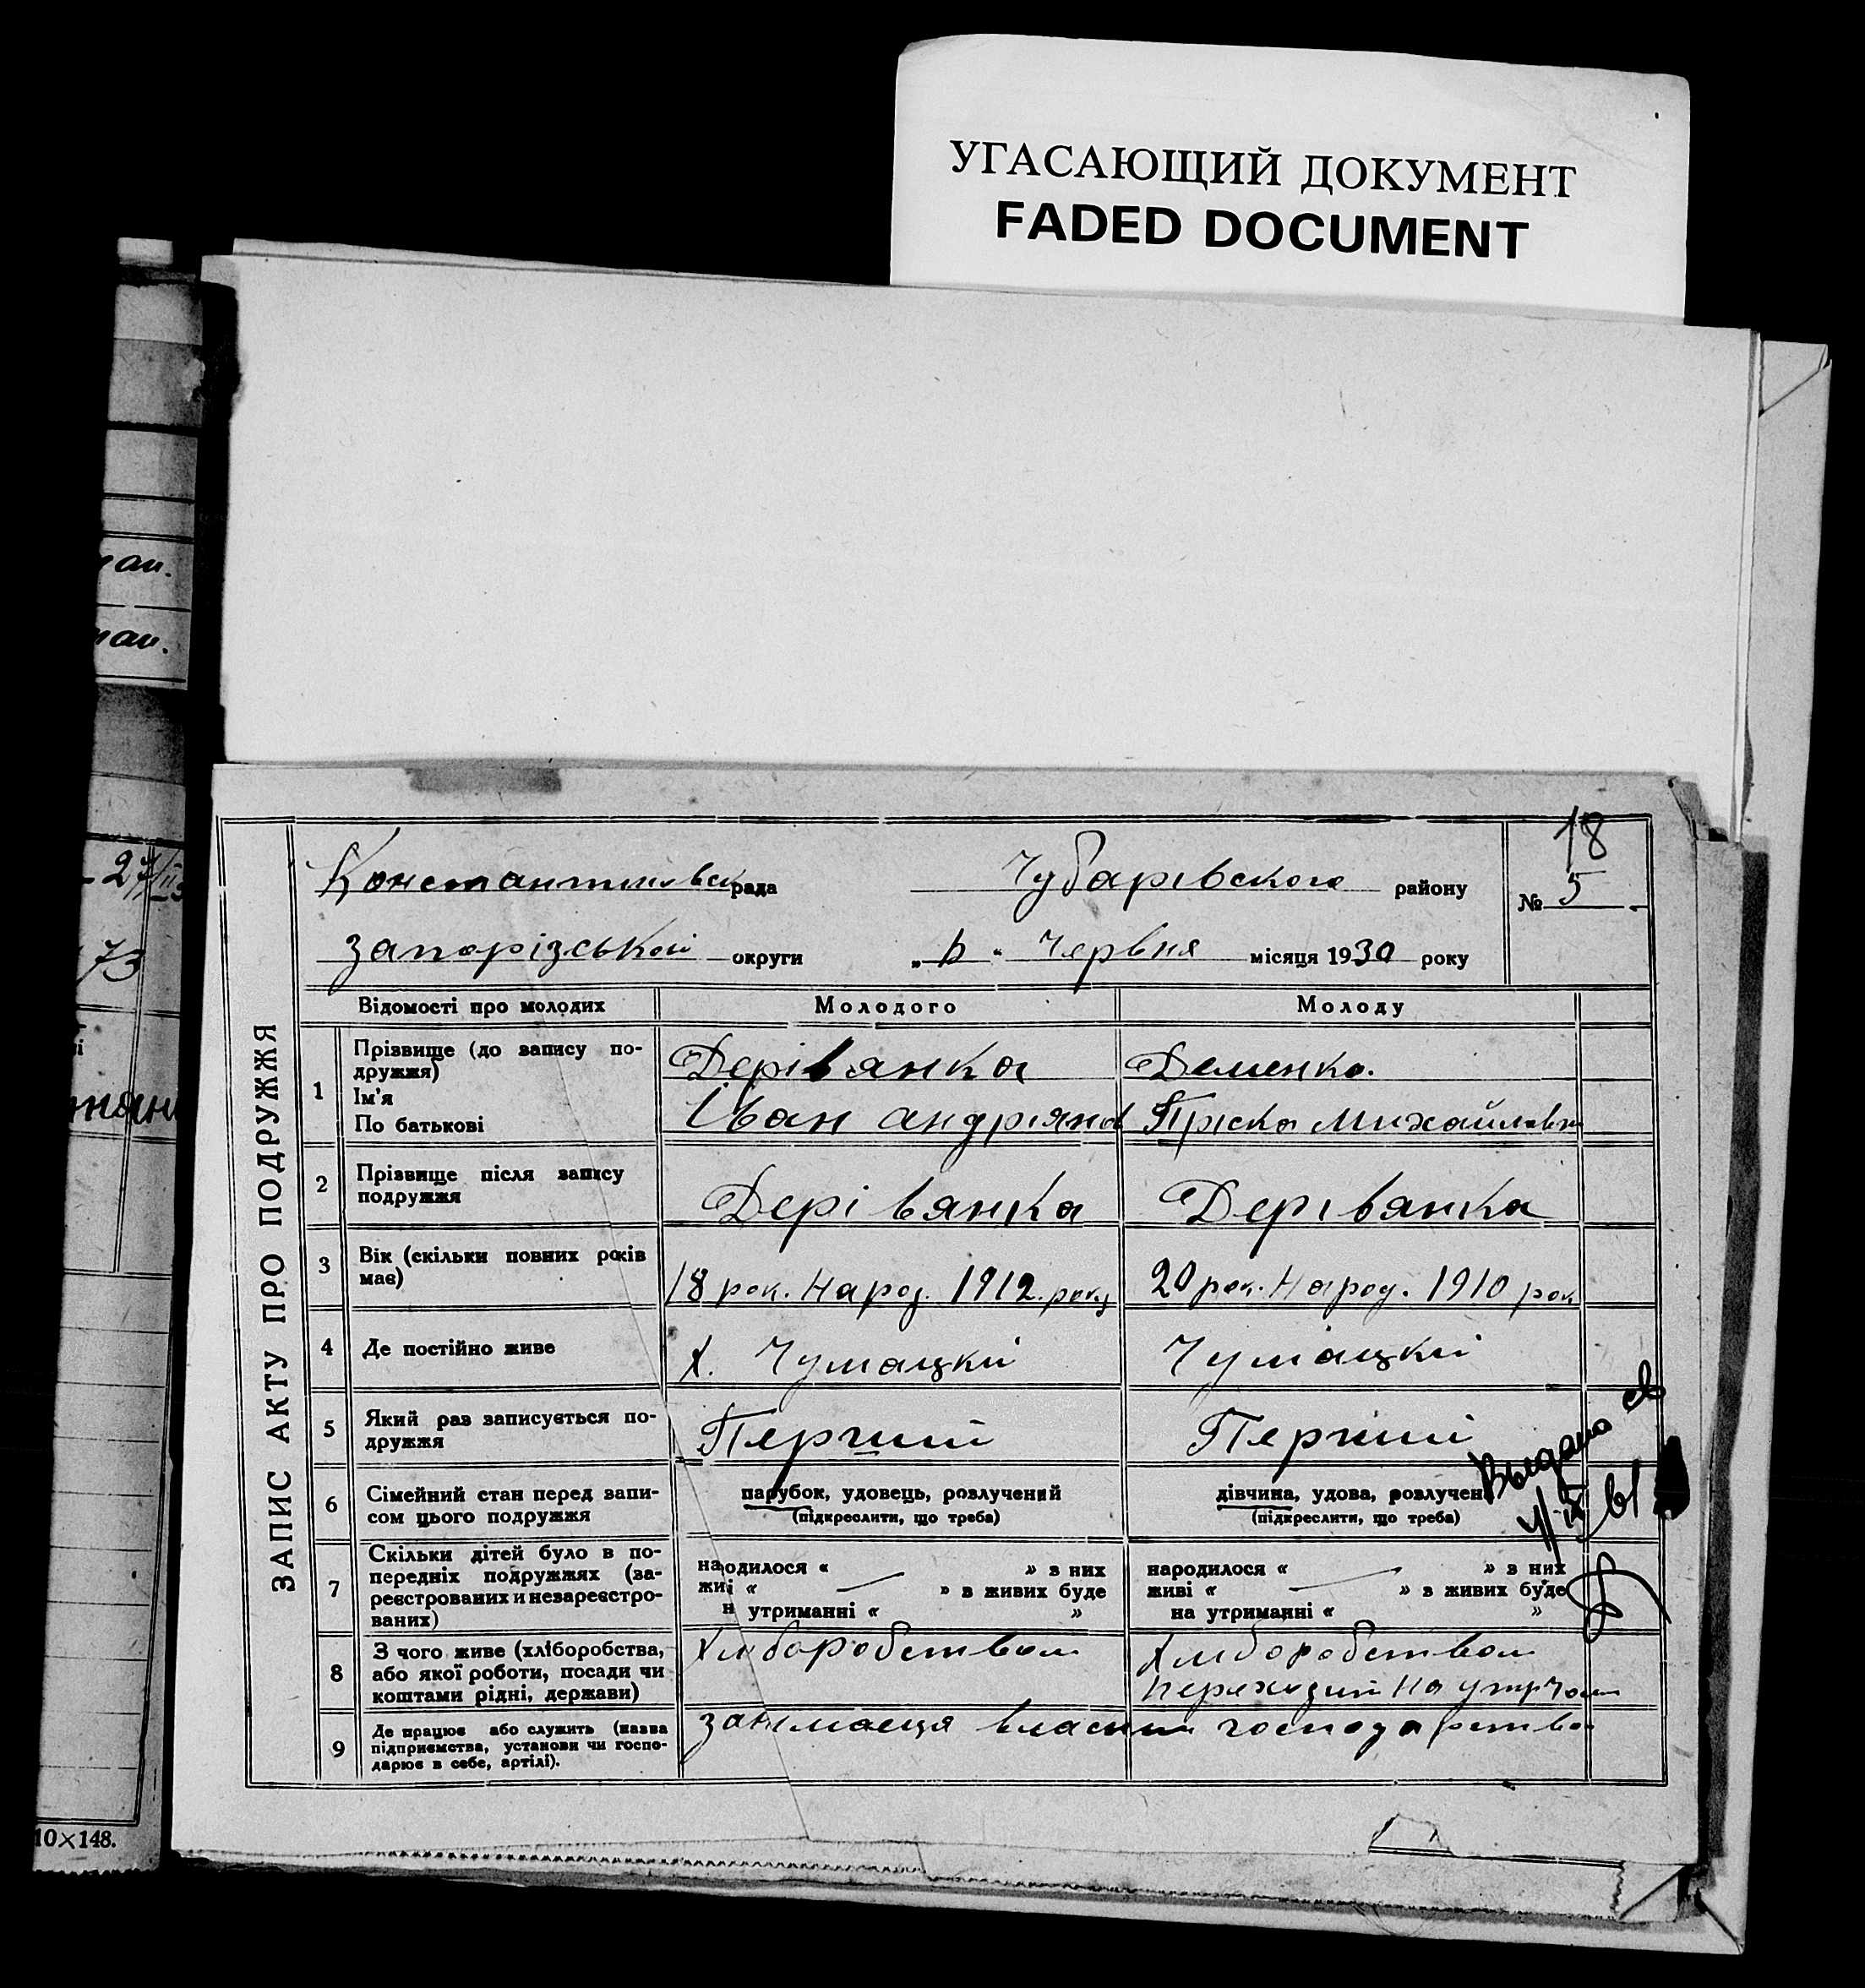 УГАСАЮЩИЙ ДОКУМЕНТ
FADED DOCUMENT
ЗАПИС АКТУ ПРО ПОДРУЖЖЯ
18
Константиновск рада Чубарівского району № 5
Запорізськой округи Червня місяця 1930 року
Відомості про молодих Молодого Молоду
1 Прізвище (до запису по-
дружжя) Дерівянка Деменко.
Ім'я
По батькові Іван андріянов Пріска Михайловн
2 Прізвище після запису
подружжя Дерівянка Дерівянка
3 Вік (скільки повних років
має) 18 рок. Народ. 1912. року 20 рок. Народ. 1910 рок
4 Де постійно живе х. Чумацкий Чумацкий
5 Який раз записується по-
дружжя Перший Перший
6 Сімейний стан перед запи-
сом цього подружжя парубок, удовець, розлучений дівчина, удова, розлучен
(підкреслити, що треба) (підкреслити, що треба)
Выдано св
7 Скільки дітей було в по-
передніх подружжях (за-
реєстрованих и незареєстро-
ваних)
народилося « » з них народилося « » з них
живі « » з живих буде живі « » з живих буде
на утриманні « » на утриманні « »
8 З чого живе (хліборобства,
або якої роботи, посади чи
коштами рідні, держави) Хліборобством Хліборобством
на
9 Де працює або служить (назва
підприємства, установи чи госпо-
дарює в себе, артілі). Занімаеця власним господарством
27/II
73
10×148.